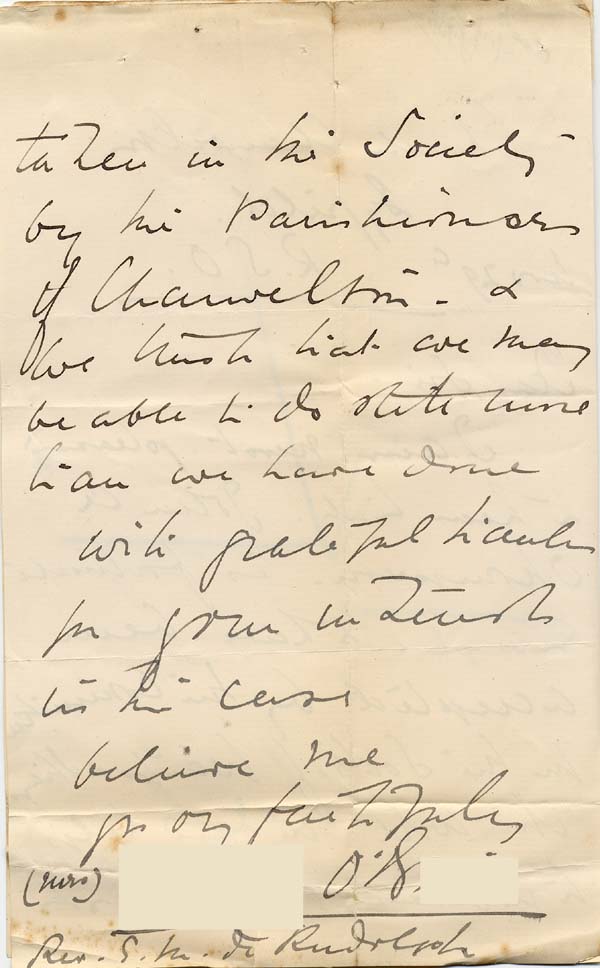 taken in the Society
by the Parishioners
of Charwelton - &
we trust that we may
be able to do still more
than we have done
with grateful thanks
for your interest
in the case
believe me
yrs very faithfully
(Mrs)
Rev. E. M. de Rudolph